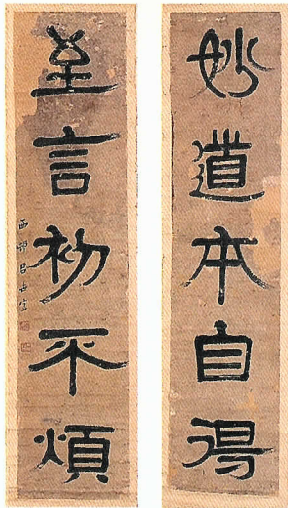 妙道本自得
至言初不煩
西邨呂世宜